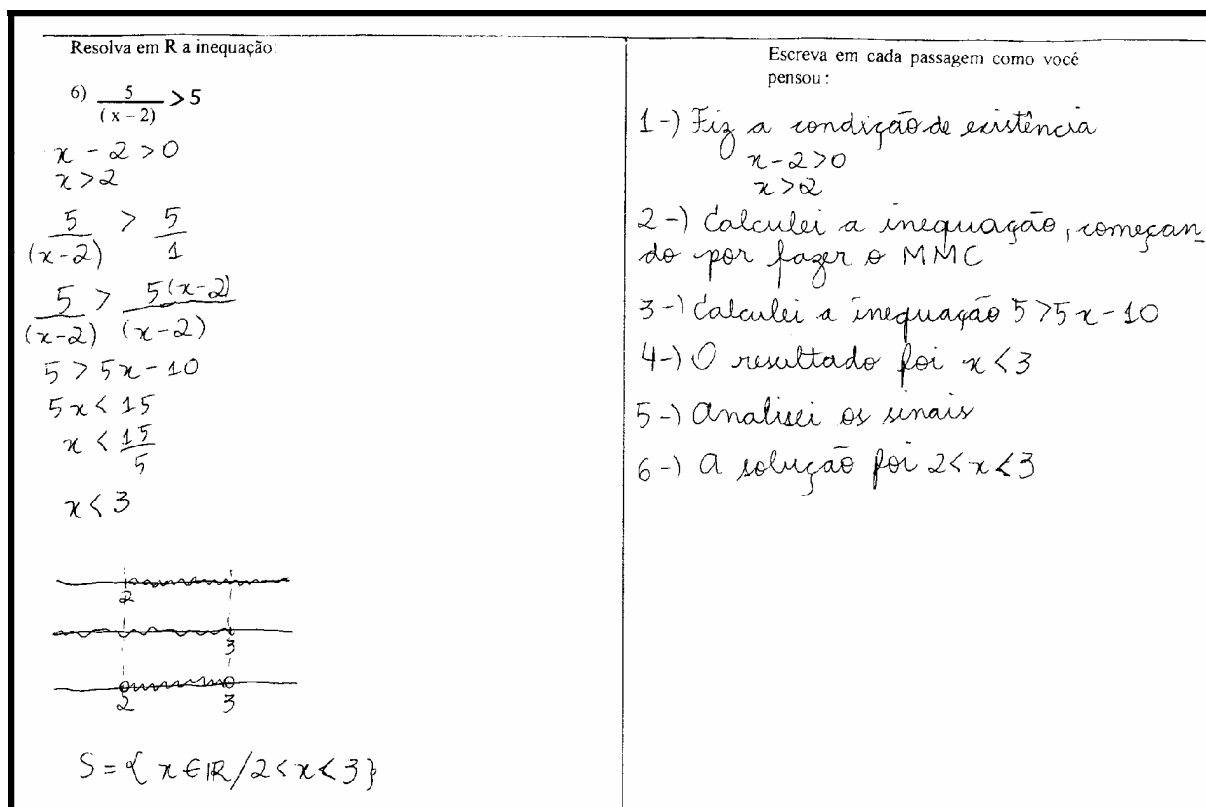 Resolva em R a inequação:
6) 5/(x – 2) > 5
x - 2 > 0
x > 2
5/(x-2) > 5/1
5/(x-2) > 5(x-2)/(x-2)
5 > 5x - 10
5x < 15
x < 15/5
x < 3
2
3
2 3
S = { x ∈ IR / 2 < x < 3 }
Escreva em cada passagem como você
pensou :
1-) Fiz a condição de existência
x - 2 > 0
x > 2
2-) Calculei a inequação, começan_
do por fazer o MMC
3-) Calculei a inequação 5 > 5x - 10
4-) O resultado foi x < 3
5-) Analisei os sinais
6-) A solução foi 2 < x < 3